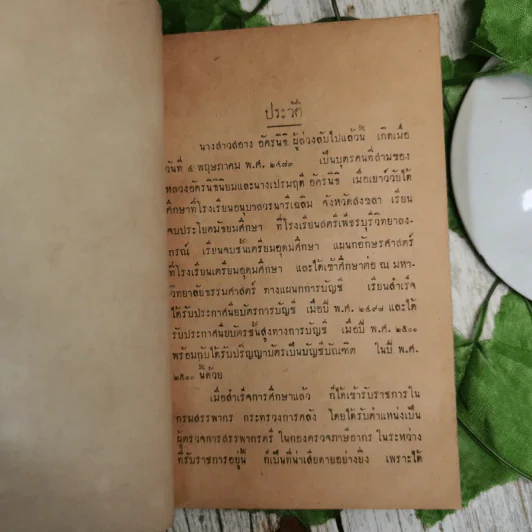 ประวัติ
นางสาวสอาง อัครนิธิ ผู้ล่วงลับไปแล้วนี้ เกิดเมื่อ
วันที่ ๕ พฤษภาคม พ.ศ. ๒๔๗๗ เป็นบุตรคนที่สามของ
หลวงอัครนิธินิยมและนางเปรมฤดี อัครนิธิ เมื่อเยาว์วัยได้
ศึกษาที่โรงเรียนอนุบาลวรนารีเฉลิม จังหวัดสงขลา เรียน
จบประโยคมัธยมศึกษา ที่โรงเรียนสตรีเพ็ชรบุรีวิทยาลง-
กรณ์ เรียนจบชั้นเตรียมอุดมศึกษา แผนกอักษรศาสตร์
ที่โรงเรียนเตรียมอุดมศึกษา และได้เข้าศึกษาต่อ ณ มหา-
วิทยาลัยธรรมศาสตร์ ทางแผนกการบัญชี เรียนสำเร็จ
ได้รับประกาศนียบัตรการบัญชี เมื่อปี พ.ศ. ๒๔๙๘ และได้
รับประกาศนียบัตรชั้นสูงทางการบัญชี เมื่อปี พ.ศ. ๒๕๐๑
พร้อมกับได้รับปริญญาบัตรเป็นบัญชีบัณฑิต ในปี พ.ศ.
๒๕๐๐ นี้ด้วย
เมื่อสำเร็จการศึกษาแล้ว ก็ได้เข้ารับราชการใน
กรมสรรพากร กระทรวงการคลัง โดยได้รับตำแหน่งเป็น
ผู้ตรวจการสรรพากรตรี ในกองตรวจภาษีอากร ในระหว่าง
ที่รับราชการอยู่นี้ ก็เป็นที่น่าเสียดายอย่างยิ่ง เพราะได้